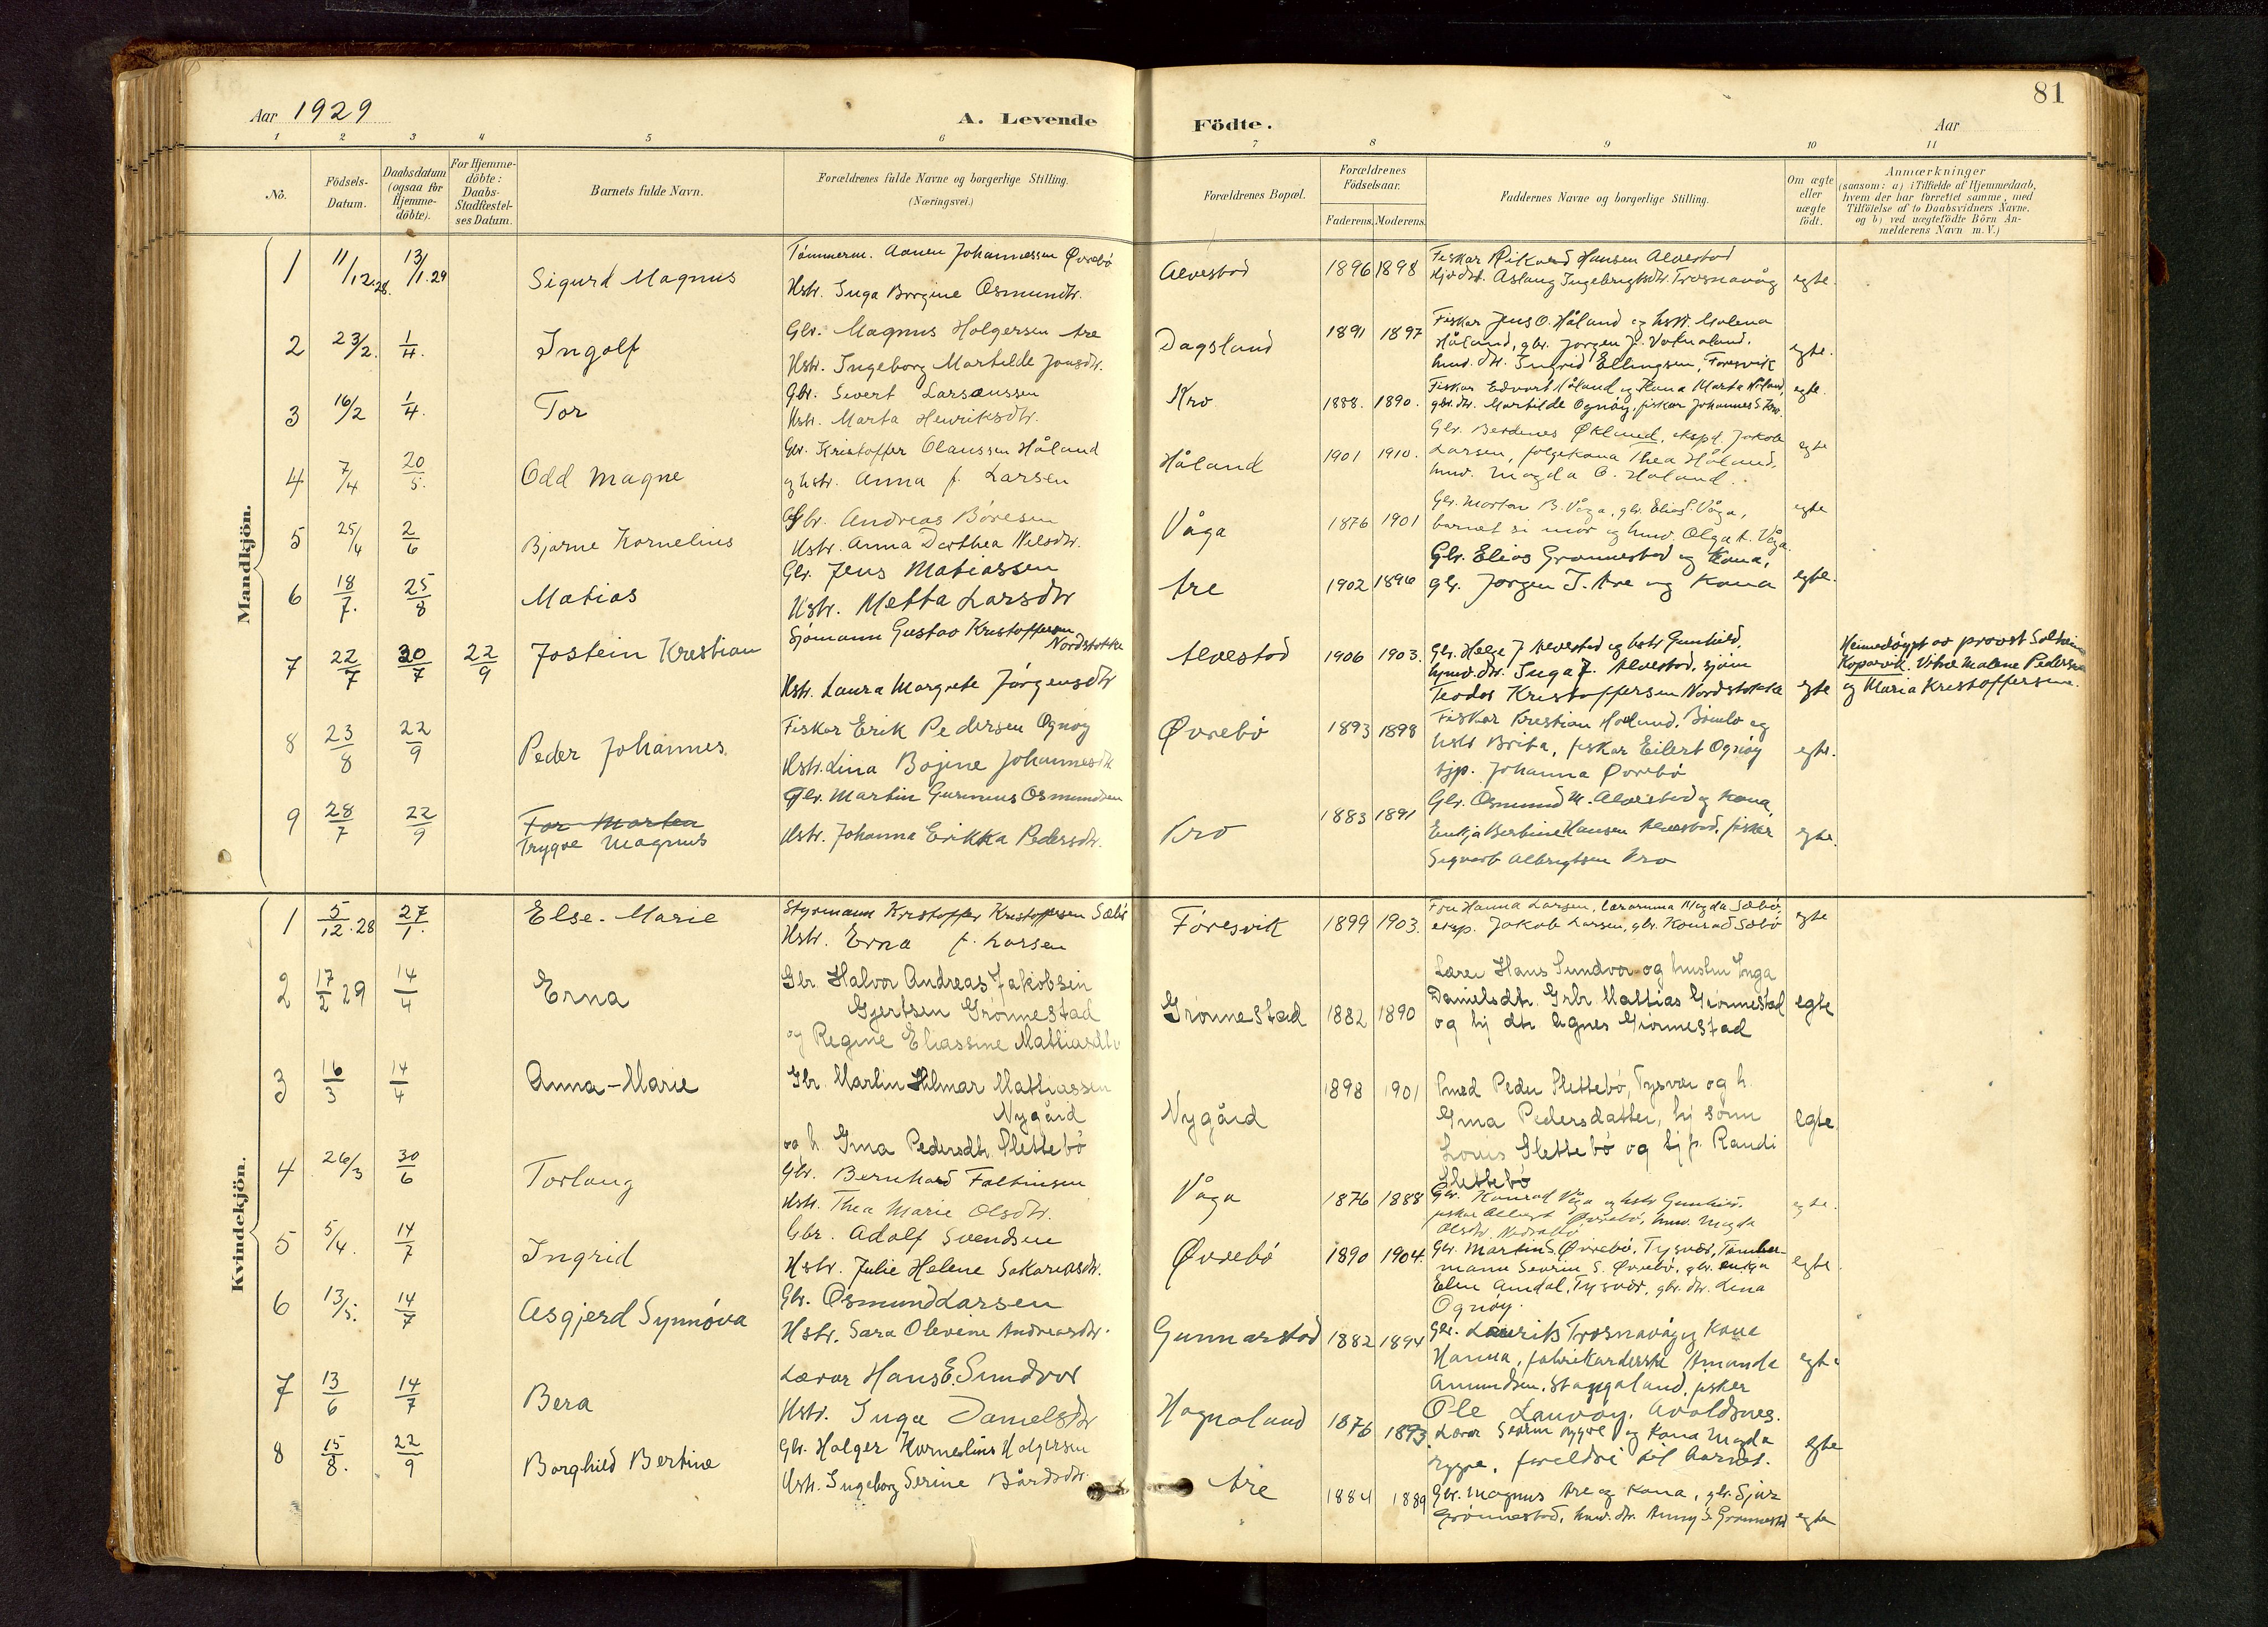 81
Aar 1929
A. Levende Födte.
Aar
1 2 3 4 5 6 7 8 9 10 11
No.
Födsels-
Datum.
Daabsdatum
(ogsaa for
Hjemme-
döbte).
For Hjemme-
döbte:
Daabs-
Stadfæstel-
ses Datum.
Barnets fulde Navn.
Forældrenes fulde Navne og borgerlige Stilling.
(Næringsvei.)
Forældrenes Bopæl.
Forældrenes
Födselsaar.
Faderens. Moderens.
Faddernes Navne og borgerlige Stilling.
Om ægte
eller
uægte
födt.
Anmærkninger
(saasom: a) i Tilfælde af Hjemmedaab,
hvem der har forrettet samme, med
Tilföielse af to Daabsvidners Navne.
og b) ved uægtefödte Börn An-
melderens Navn m. V.)
Mandkjön.
1 11/12.28. 13/1.29 Sigurd Magnus
Tømmerm. Aanen Johannessen Øvrebø
Hstr. Inga Bergine Osmundtr.
Alvestad 1896 1898
Fisker Rikard Hansen Alvestad
Aslaug Ingebrigtsdtr. Trosnavåg egte.
2 23/2. 1/4. Ingolf
Gbr. Magnus Holgersen Are
Hstr. Ingeborg Martilde Jonsdtr.
Dagsland 1891 1897
Fiskar Jens O. Håland og hstr. Malena
Håland, gbr. Jørgen J. Vatnaland.
huud. dtr. Ingrid Ellingsen, Føresvik egte.
3 16/2 1/4. Tor
Gbr. Sivert Larsaussen
Hstr. Marta Henriksdtr.
Kro 1888. 1890.
Fiskar Edvart Håland og kona Marta Håland,
gbr. dtr. Martilde Ognøy, fiskar Johannes S. Kro. egte.
4 7/4 20/5. Odd Magne
Gbr. Kristoffer Olaussen Håland
og hstr. Anna f. Larsen
Håland 1901 1910.
Gbr. Berdines Økland, ekspd. Jakob
Larsen, følgekona Thea Håland,
huud. Magda O. Håland. egte
5 25/4 2/6 Bjarne Kornelius
Gbr. Andreas Båresen
Hstr. Anna Dorthea Nilsdtr.
Våga 1876 1901
Gbr. Morten B. Våga, gbr. Elias Våga,
barnet si mor og huud. Olga A. Våga. egte
6 18/7. 25/8 Matias
Gbr. Jens Matiassen
Hstr. Metta Larsdtr
Are 1902 1896
Gbr. Elias Grønnestad og kona,
gbr. Jørgen T. Are og kona egte.
7 22/7 30/7 22/9 Jostein Kristian
Sjømann Gustav Kristoffersen
Nordstokke
Hstr. Laura Margrete Jørgensdtr
Alvestad 1906 1903.
Gbr. Helge J. Alvestad og hstr Gunhild,
dtr. Inga J. Alvestad, sjöm
Teodor Kristoffersen Nordstokke egte
Heimedøypt av provst Soltvin
Kopervik. Vitne Malene Pedersen
og Maria Kristoffersen.
8 23/8 22/9 Peder Johannes
Fiskar Erik Pedersen Ognøy
Hstr. Lina Bojine Johannesdtr
Øvrebø 1893 1898
Fiskar Kristian Hovland. Bømlo og
hstr Brita, fiskar Eilert Ognøy
tjp. Johanna Øvrebø egte.
9 28/7 22/9 Tor Morten
Trygve Magnus
Gbr. Martin Gunnius Osmundsen
Hstr. Johanna Erikka Pedersdtr.
Kro 1883 1891
Gbr. Osmund M. Alvestad og kona,
Enkja Bertine Hansen Alvestad. fisker
Sigvart Albregtsen Kro egte.
Kvindekjön.
1 5/12.28 27/1. Else-Marie
Styrmann Kristoffer Kristoffersen Sæbø
Hstr. Erna f. Larsen
Føresvik 1899 1903.
Fru Hanna Larsen, lærarinna Magda Sæbø,
eksp. Jakob Larsen, gbr. Konrad Sæbø egte
2 17/2 29 14/4 Erna
Gbr Halvor Andreas Jakobsen
Gjertsen Grønnestad
og Regine Eliassine Mattiasdtr
Grønnestad 1882 1890
Lærer Hans Sundvor og hustru Inga
Danielsdtr. Grbr. Mattias Grønnestad
og hj dtr Agnes Grønnestad egte
3 16/3 14/4 Anna-Marie
Gbr. Martin Hilmar Mattiassen
Nygård
og h. Gina Pedersdtr. Slettebø
Nygård 1898 1901
Smed Peder Slettebø, Tysvær og h.
Gina Pedersdatter, hj sønn
Louis Slettebø og tj p. Randi
Slettebø egte
4 26/3 30/6 Torlaug
Gbr. Bernhard Faltinsen
Hstr. Thea Marie Olsdtr.
Våga 1876 1888
Gbr. Konrad Våga og hstr Gunhild.
fiskar Albert Øvrebø, huud. Magda
Olsdtr. egte.
5 5/4. 14/7 Ingrid
Gbr. Adolf Svendsen
Hstr. Julie Helene Sakariasdtr.
Øvrebø 1890 1904.
Gbr. Martin S. Øvrebø, Tysvær, Tømber-
mann Severin S. Øvrebø, gbr. enkja
Elen Amdal, Tysvær, gbr. dtr. Lina
Ognøy. egte.
6 13/5. 14/7 Asgjerd Synnøva
Gbr. Osmund Larsen
Hstr. Sara Olevine Andreasdtr.
Gunnarstad 1882 1894
Gbr. Laurits Trosnavåg og kona
Hanna, fabrikarderske Amanda
Amundsen, Stangaland, fisker
Ole Lauvøy, Avaldsnes. egte
7 13/6 14/7 Bera
Lærar Hans E. Sundvor
Hstr. Inga Danielsdtr
Hognaland 1876 1893.
Lærer Severin Rygve og kona Magda
Rygve, foreldri til barnet. egte
8 15/8. 22/9 Borghild Bertine
Gbr. Holger Kornelius Holgersen
Hstr. Ingeborg Serine Bårdsdtr.
Are 1884 1889
Gbr. Magnus Are og kona, gbr. Sjur
Grønnestad, huud. dtr. Anny S. Grønnestad egte